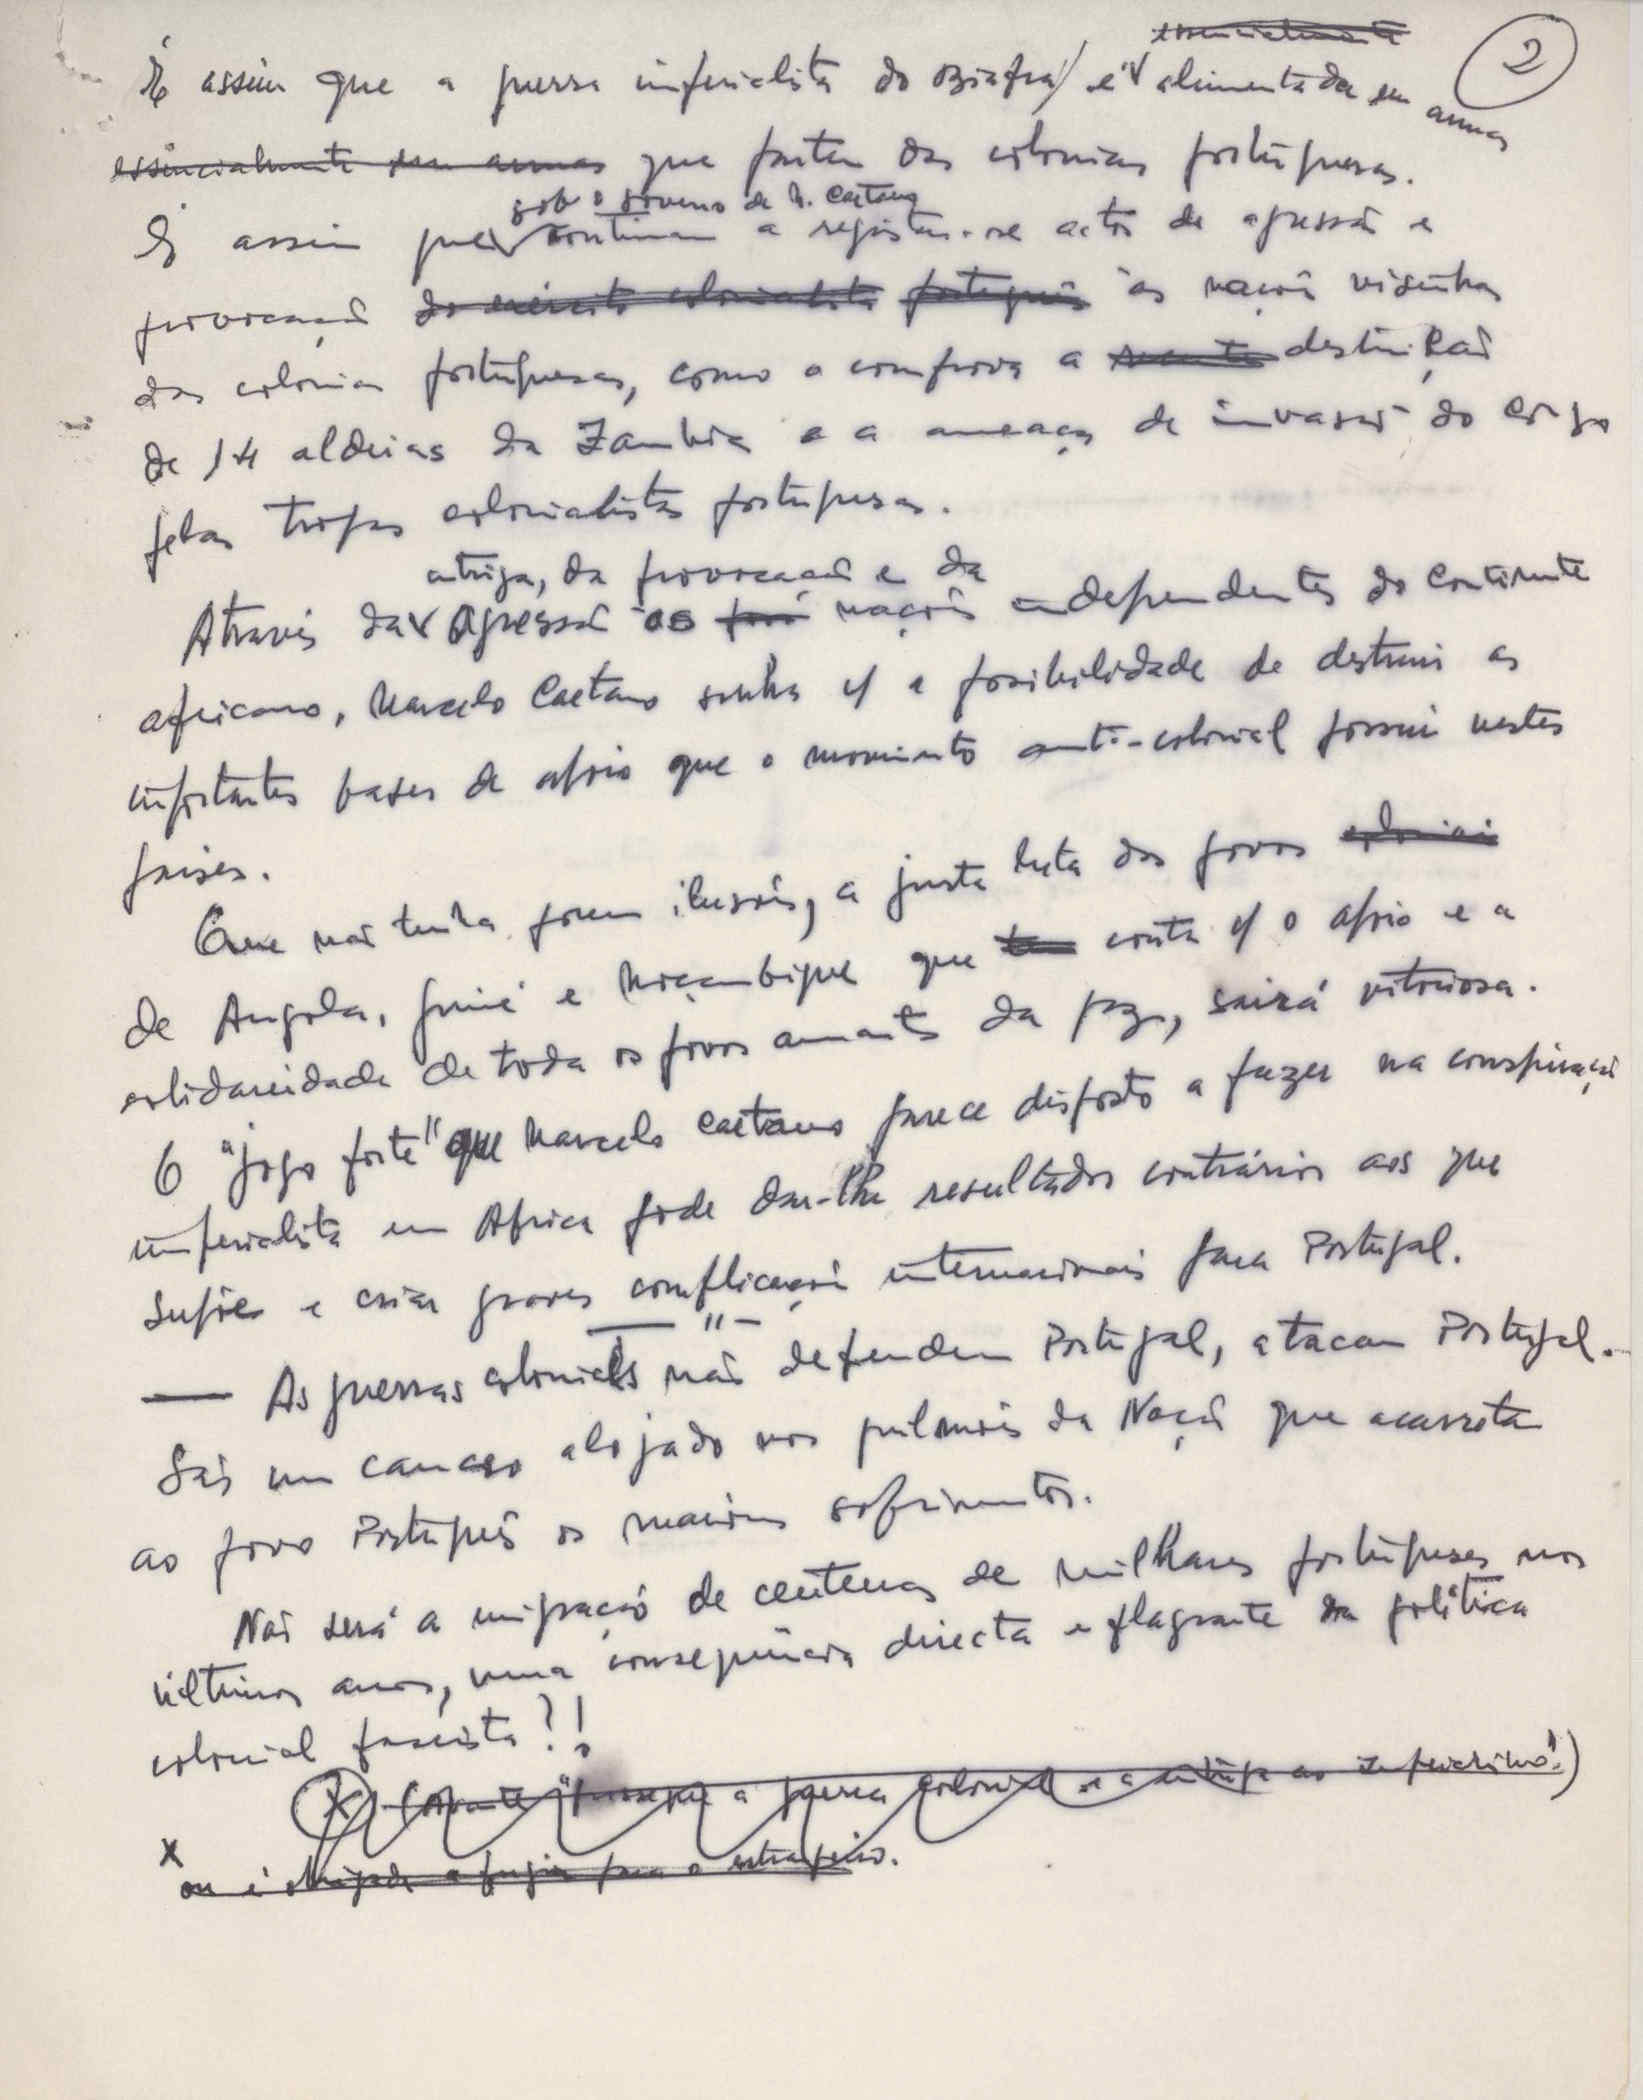 2
essencialmente
É assim que a guerra imperialista do Biafra é alimentada em armas
essencialmente em armas que partem das colónias portuguesas.
sob o governo de M. Caetano
É assim que continuam a registar-se actos de agressão e
provocação do exército colonialista português às nações visinhas
das colónias portuguesas, como o comprova a destruição
de 14 aldeias da Zambia e a ameaça de invasão do Congo
pelas tropas colonialistas portuguesas.
intriga, da provocação e da
Através da agressão às nações independentes do Continente
africano, Marcelo Caetano sonha c/ a possibilidade de destruir as
importantes bases de apoio que o movimento anti-colonial possui nestes
países.
Que não tenha porem ilusões, a justa luta dos povos coloniais
de Angola, Guiné e Moçambique que conta c/ o apoio e a
solidariedade de todos os povos amantes da paz, sairá vitoriosa.
O "jogo forte" que Marcelo Caetano parece disposto a fazer na conspiração
imperialista em Africa pode dar-lhe resultados contrários aos que
supõe e criar graves complicações internacionais para Portugal.
— " —
— As guerras coloniais não defendem Portugal, atacam Portugal.
São um cancro alojado nos pulmões da Nação que acarreta
ao povo Português os maiores sofrimentos.
Não será a emigração de centenas de milhares portugueses nos
últimos anos, uma consequência directa e flagrante da política
colonial fascista?!
(X) a guerra colonial e a entrega ao imperialismo!)
X
ou é obrigada a fugir para o estrangeiro.